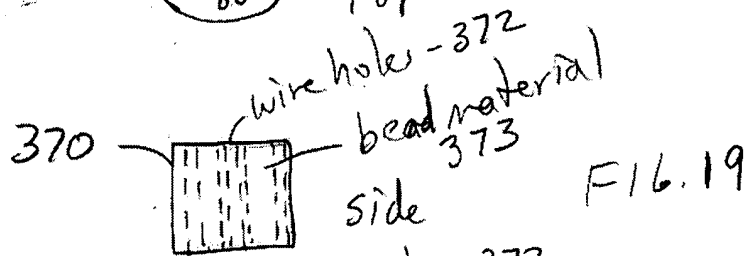 wire holes - 372
370
bead material
373
side
FIG. 19